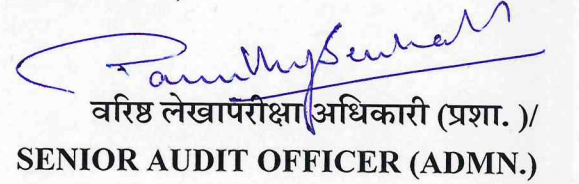 वरिष्ठ लेखापरीक्षा अधिकारी (प्रशा. )/
SENIOR AUDIT OFFICER (ADMN.)